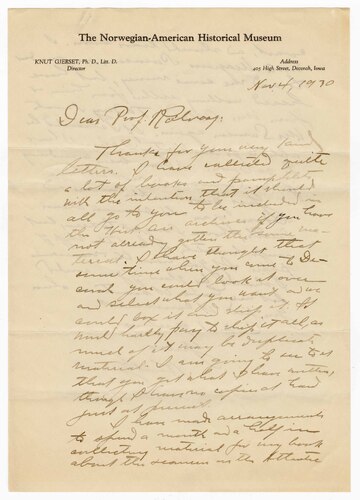 The Norwegian-American Historical Museum
KNUT GJERSET, Ph. D., Litt. D.
Director
Address
405 High Street, Decorah, Iowa
Nov 4, 1930
Dear Prof. Rolvaag:
Thanks for your very kind
letters. I have collected quite
a lot of books and pamphlets
with the intention that it should
all go to you to be included in
the archives if you have
not already gotten the same ma-
terial. I have thought that
sometime when you come to De-
corah you could look it over
and select what you want and we
could box it and ship it. It
would hardly pay to ship it all, as
much of it may be duplicate
material. I am going to see to it
that you get what I have written,
though I have no copies at hand
just at present.
I have made arrangements
to spend a month and a half in
collecting material for my book
about the seamen on the Atlantic